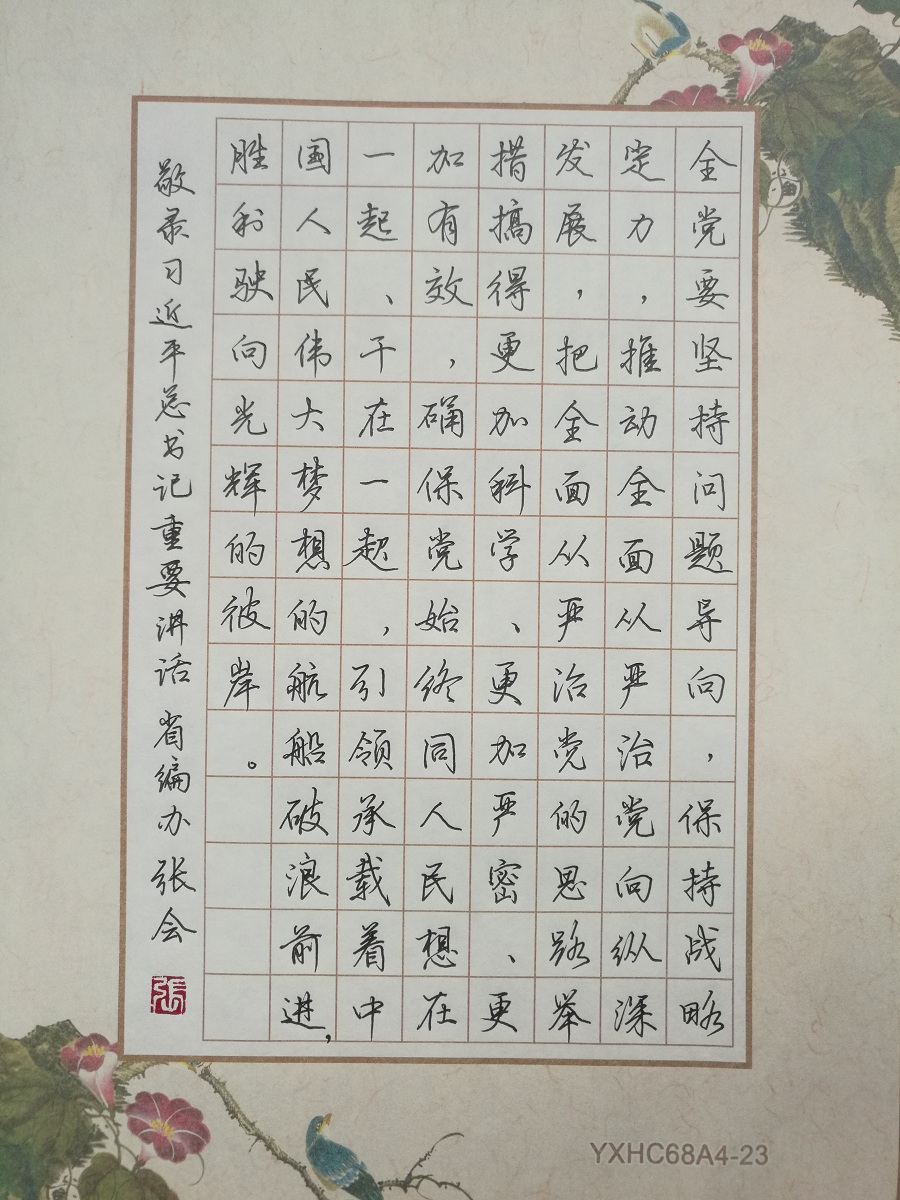 全党要坚持问题导向，保持战略
定力，推动全面从严治党向纵深
发展，把全面从严治党的思路举
措搞得更加科学、更加严密、更
加有效，确保党始终同人民想在
一起、干在一起，引领承载着中
国人民伟大梦想的航船破浪前进，
胜利驶向光辉的彼岸。
敬录习近平总书记重要讲话 省编办 张会
張
YXHC68A4-23